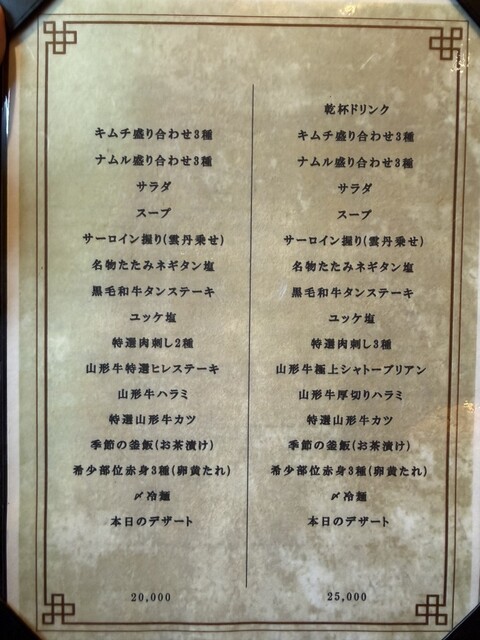 キムチ盛り合わせ3種
ナムル盛り合わせ3種
サラダ
スープ
サーロイン握り(雲丹乗せ)
名物たたみネギタン塩
黒毛和牛タンステーキ
ユッケ塩
特選肉刺し2種
山形牛特選ヒレステーキ
山形牛ハラミ
特選山形牛カツ
季節の釜飯(お茶漬け)
希少部位赤身3種(卵黄たれ)
〆冷麺
本日のデザート
20,000
乾杯ドリンク
キムチ盛り合わせ3種
ナムル盛り合わせ3種
サラダ
スープ
サーロイン握り(雲丹乗せ)
名物たたみネギタン塩
黒毛和牛タンステーキ
ユッケ塩
特選肉刺し3種
山形牛極上シャトーブリアン
山形牛厚切りハラミ
特選山形牛カツ
季節の釜飯(お茶漬け)
希少部位赤身3種(卵黄たれ)
〆冷麺
本日のデザート
25,000